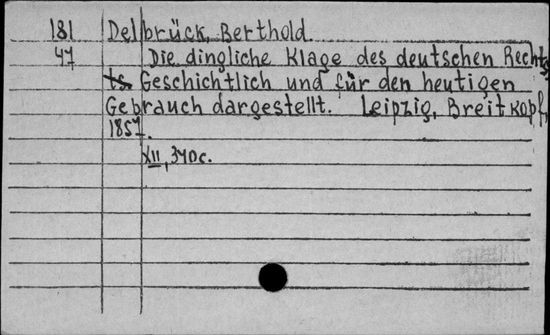 181 Delbrück, Berthold.
47 Die dingliche Klage des deutschen Rechts
ts. Geschichtlich und für den heutigen
Gebrauch dargestellt. Leipzig, Breitkopf,
1857.
XII, 340c.